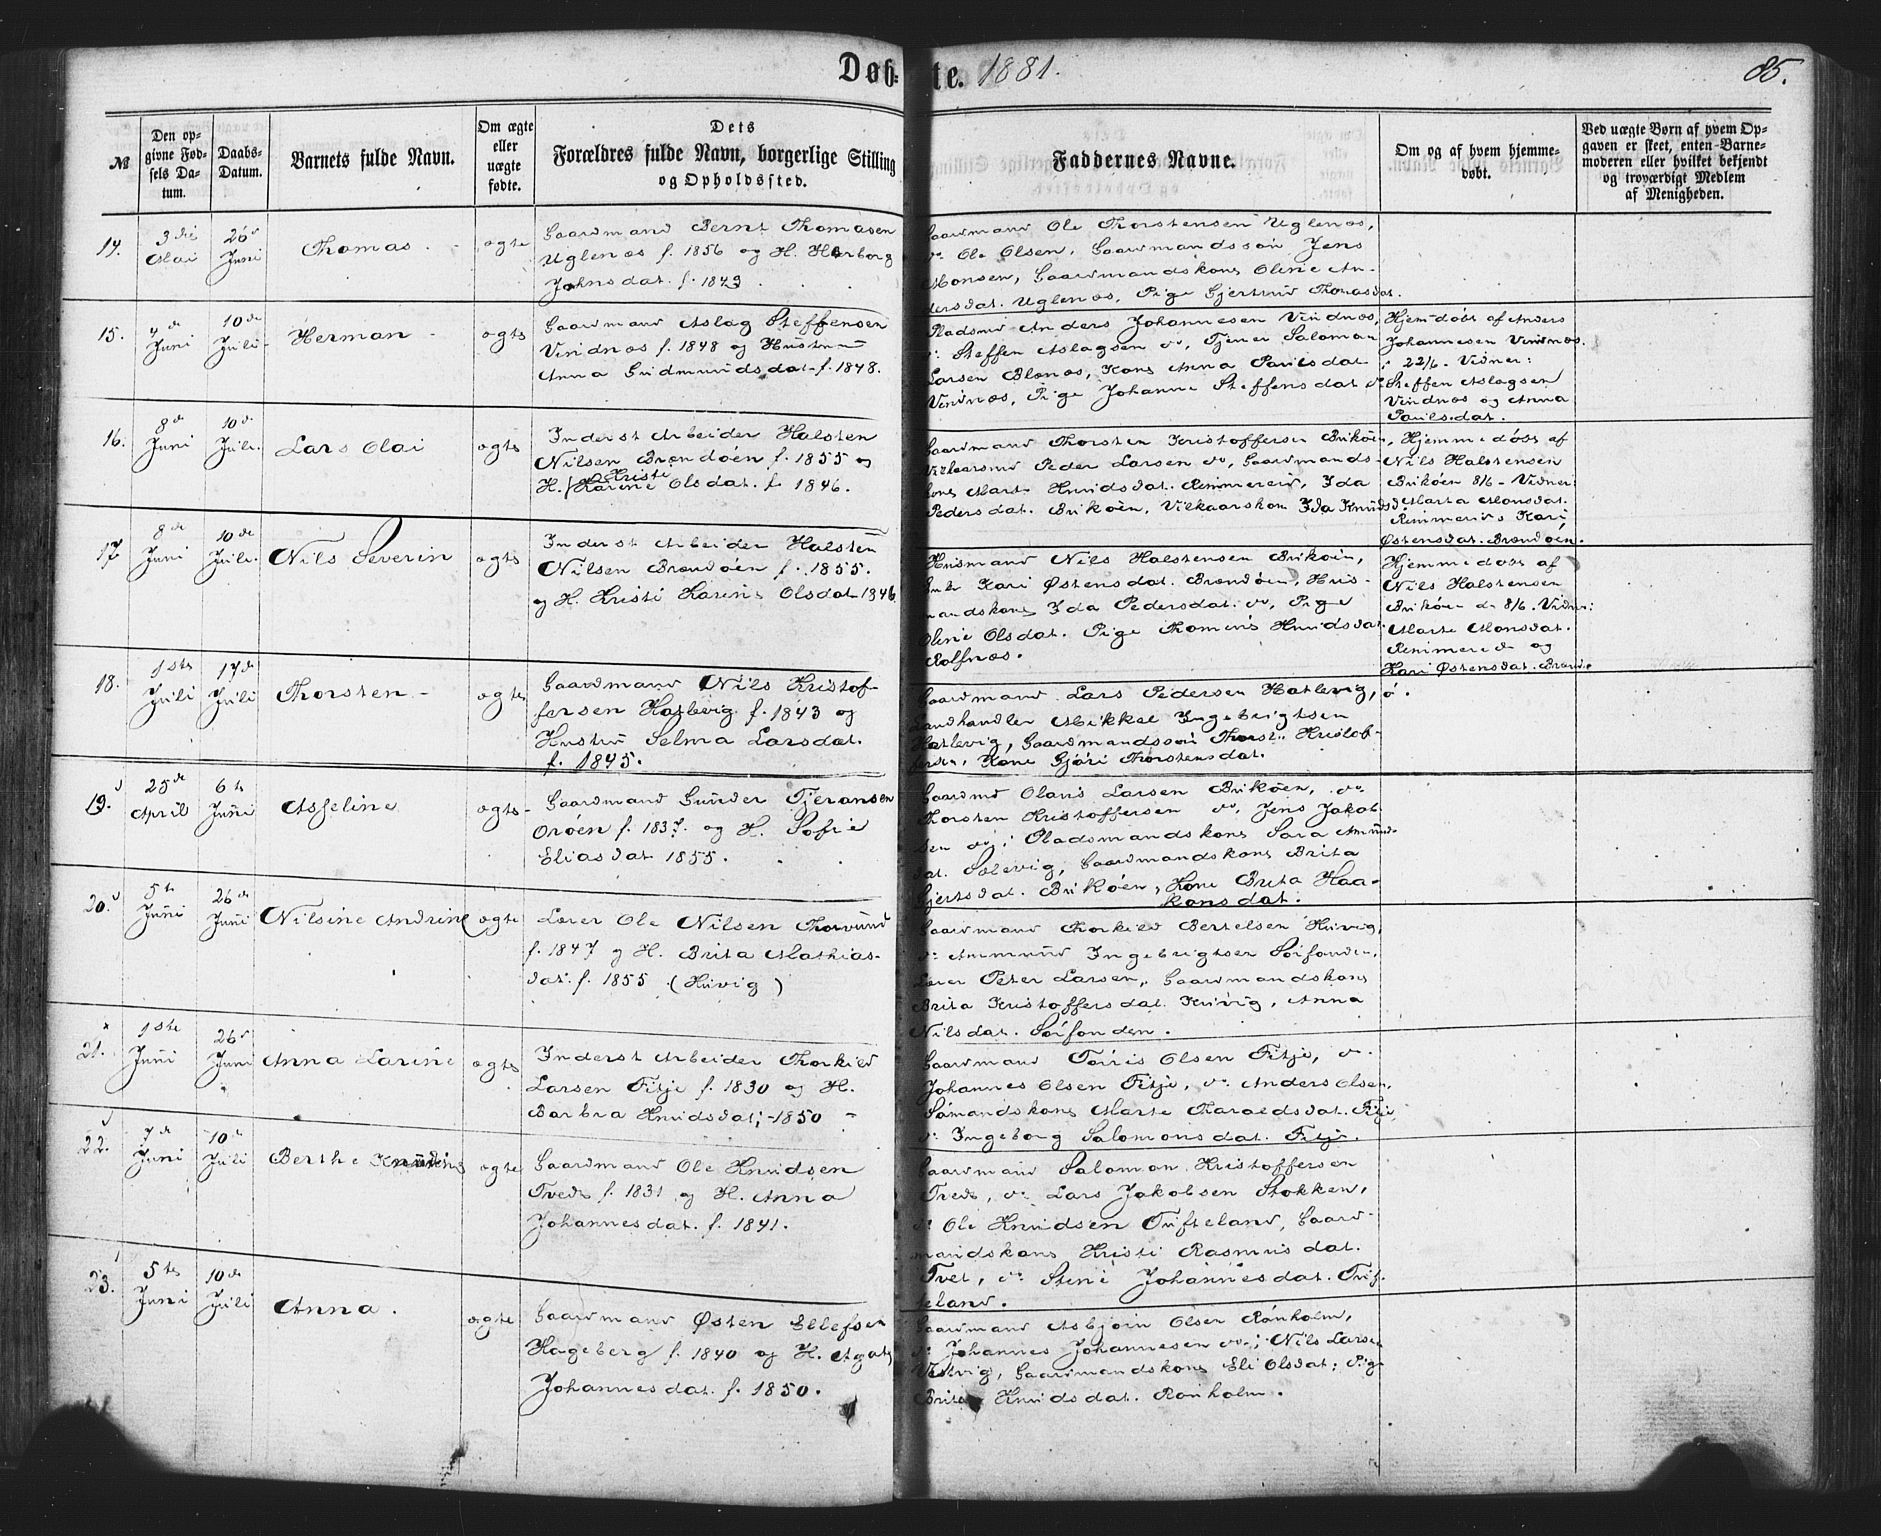 Døb-te. 1881.
85.
№
Den op-
givne Fød-
sels Da-
tum.
Daabs-
Datum.
Barnets fulde Navn.
Om ægte
eller
uægte
fødte.
Dets
Forældres fulde Navn, borgerlige Stilling
og Opholdssted.
Faddernes Navne.
Om og af hvem hjemme-
døbt.
Ved uægte Børn af hvem Op-
gaven er skeet, enten Barne-
moderen eller hvilket bekjendt
og troværdigt Medlem
af Menigheden.
14.
3die
Mai
26d
Juni
Thomas
ægte
Gaardmand Bernt Thomasen
Uglenæs f. 1856 og H. Herborg
Johnsdat. f. 1843
Gaardmand Ole Thorstensen Uglenæs,
do Ole Olsen, Gaardmandssøn Jens
Monsen, Gaardmandskone Oline An-
dersdat. Uglenæs, Pige Gjertrud Thomasdat.
15.
4de
Juni
10de
Juli
Herman
ægte
Gaardmand Aslag Steffensen
Vindnæs f. 1848 og Hustru
Anna Gudmundsdat. f. 1848.
Pladsmd Anders Johannesen Vindnæs,
do Steffen Aslagsen do, Tjener Salomon
Larsen Blænæs, Kone Anna Paulsdat
Vindnæs, Pige Johanne Steffensdat do
Hjemdøbt af Anders
Johannesen Vindnæs.
22/6. Vidner:
Steffen Aslagsen
Vindnæs og Anna
Paulsdat.
16.
8d
Juni
10de
Juli.
Lars Olai
ægte
Inderst Arbeider Halsten
Nilsen Brandøen f. 1855 og
H. Kristi Karine Olsdat. f. 1846.
Gaardmand Thorsten Kristoffersen Brikøen,
Vilkaarsmd Peder Larsen do, Gaardmands-
kone Marte Knudsdat. Remmereid, Ida
Pedersdat. Brikøen, Vilkaarskone Ida Knudsd.
Hjemmedøbt af
Nils Halstensen
Brikøen 8/6 - Vidner:
Marta Monsdat.
Remmereid, Kari
Østensdat. Brandøen.
17
8de
Juni
10de
Juli.
Nils Severin
ægte
Inderst Arbeider Halsten
Nilsen Brandøen f. 1855.
og H. Kristi Karine Olsdat 1846.
Husmand Nils Halstensen Brikøen,
Kari Østensdat. Brandøen, Hus-
mandskone Ida Pedersdat. do, Pige
Oline Olsdat. Pige Thomine Knudsdat.
Rolfnæs.
Hjemmedøbt af
Nils Halstensen
Brikøen d 8/6. Vidner:
Marte Monsdat.
Remmereid og
Kari Østensdat. Brand-
ø.
18.
1ste
Juli
17de
Juli
Thorsten
ægte
Gaardmand Nils Kristof-
fersen Hatlevig f. 1843 og
Hustru Selma Larsdat.
f. 1845.
Gaardmand Lars Pedersen Hatlevig,
Landhandler Mikkel Ingebrigtsen
Hatlevig, Gaardmandssøn Thorst. Kristof-
fersen, Kone Gjøri Thorstensdat.
19.
25de
April
6te
Juni
Asseline
ægte
Gaardmand Gunder Tjeransen
Orøen f. 1837. og H. Sofie
Eliasdat 1855.
Gaardmd Olaus Larsen Brikøen, do
Thorsten Kristoffersen do, Jens Jakob-
sen do; Pladsmandskone Sara Amund-
dat. Solevig, Gaardmandskone Brita
Gjertsdat. Brikøen, Kone Brita Haa-
konsdat.
20.
5te
Juni
26de
Juni
Nilsine Andrine
ægte
Lærer Ole Nilsen Thorvund
f. 1847 og H. Brita Mathias-
dat. f. 1855 (Huvig)
Gaardmand Thorkild Bertelsen Huvig,
do Ammund Ingebrigtsen Sørfonden,
Lærer Peter Larsen, Gaardmandskone
Brita Kristoffersdat. Huvig, Anna
Nilsdat. Sørfonden.
21.
1ste
Juni
26d
Juni
Anna Larine
ægte
Inderst Arbeider Thorkild
Larsen Fitje f. 1830 og H.
Barbra Knudsdat; -1850 -
Gaardmand Tøris Olsen Fitje, do
Johannes Olsen Fitje, do Anders Olsen,
Sømandskone Marte Haraldsdat. Fitje,
do Ingeborg Salomonsdat. Fitje.
22.
7de
Juni
10de
Juli
Berthe Knudine
ægte
Gaardmand Ole Knudsen
Tvedt f. 1831 og H. Anna
Johannesdat. f. 1841.
Gaardmand Salomon Kristoffersen
Tvedt, do Lars Jakobsen Stokken,
do Ole Knudsen Tufteland, Gaard-
mandskone Kristi Rasmusdat.
Tvet, do Stine Johannesdat. Tuf-
teland.
23.
5te
Juni
10de
Juli
Anna.
ægte
Gaardmand Østen Ellefsen
Hageberg f. 1840 og H. Agate
Johannesdat. f. 1850.
Gaardmand Asbjørn Olsen Rønholm,
do Johannes Johannesen do; Nils Larsen
Vestvig, Gaardmandskone Eli Olsdat; Pige
Brite Knudsdat. Rønholm.